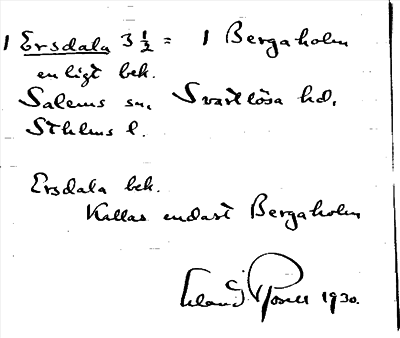 1 Ersdala 3 1/2 = 1 Bergaholm
enligt bek.
Salems sn, Svartlösa hd,
Sthlms l.
Ersdala bek.
Kallas endast Bergaholm
Erland Rosell 1930.